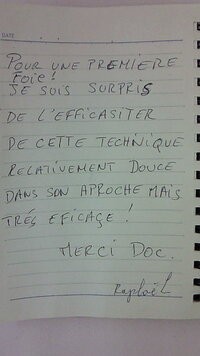 DATE
POUR UNE PREMIERE
FOIE!
JE SUIS SURPRIS
DE L'EFFICASITER
DE CETTE TECHNIQUE
RELATIVEMENT DOUCE
DANS SON APROCHE MAIS
TRÉS EFICAGE!
MERCI DOC.
Raphaël